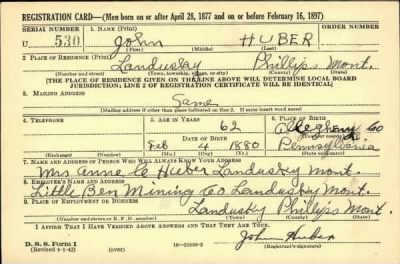 REGISTRATION CARD—(Men born on or after April 28, 1877 and on or before February 16, 1897)
SERIAL NUMBER 1. NAME (Print) ORDER NUMBER
U 530 John HUBER
(First) (Middle) (Last)
2. PLACE OF RESIDENCE (Print)
Landusky Phillips Mont.
(Number and street) (Town, township, village, or city) (County) (State)
[THE PLACE OF RESIDENCE GIVEN ON THE LINE ABOVE WILL DETERMINE LOCAL BOARD
JURISDICTION; LINE 2 OF REGISTRATION CERTIFICATE WILL BE IDENTICAL]
3. MAILING ADDRESS
Same
[Mailing address if other than place indicated on line 2. If same insert word same]
4. TELEPHONE 5. AGE IN YEARS 6. PLACE OF BIRTH
62 Allegheny Co
DATE OF BIRTH (Town or county)
Feb 4 1880 Pennsylvania
(Exchange) (Number) (Mo.) (Day) (Yr.) (State or country)
7. NAME AND ADDRESS OF PERSON WHO WILL ALWAYS KNOW YOUR ADDRESS
Mrs Anne C Huber Landusky Mont.
8. EMPLOYER'S NAME AND ADDRESS
Little Ben Mining Co Landusky Mont.
9. PLACE OF EMPLOYMENT OR BUSINESS
Landusky Phillips Mont.
(Number and street or R. F. D. number) (Town) (County) (State)
I AFFIRM THAT I HAVE VERIFIED ABOVE ANSWERS AND THAT THEY ARE TRUE.
John Huber
D. S. S. Form 1 (Registrant's signature)
(Revised 4-1-42) (over)